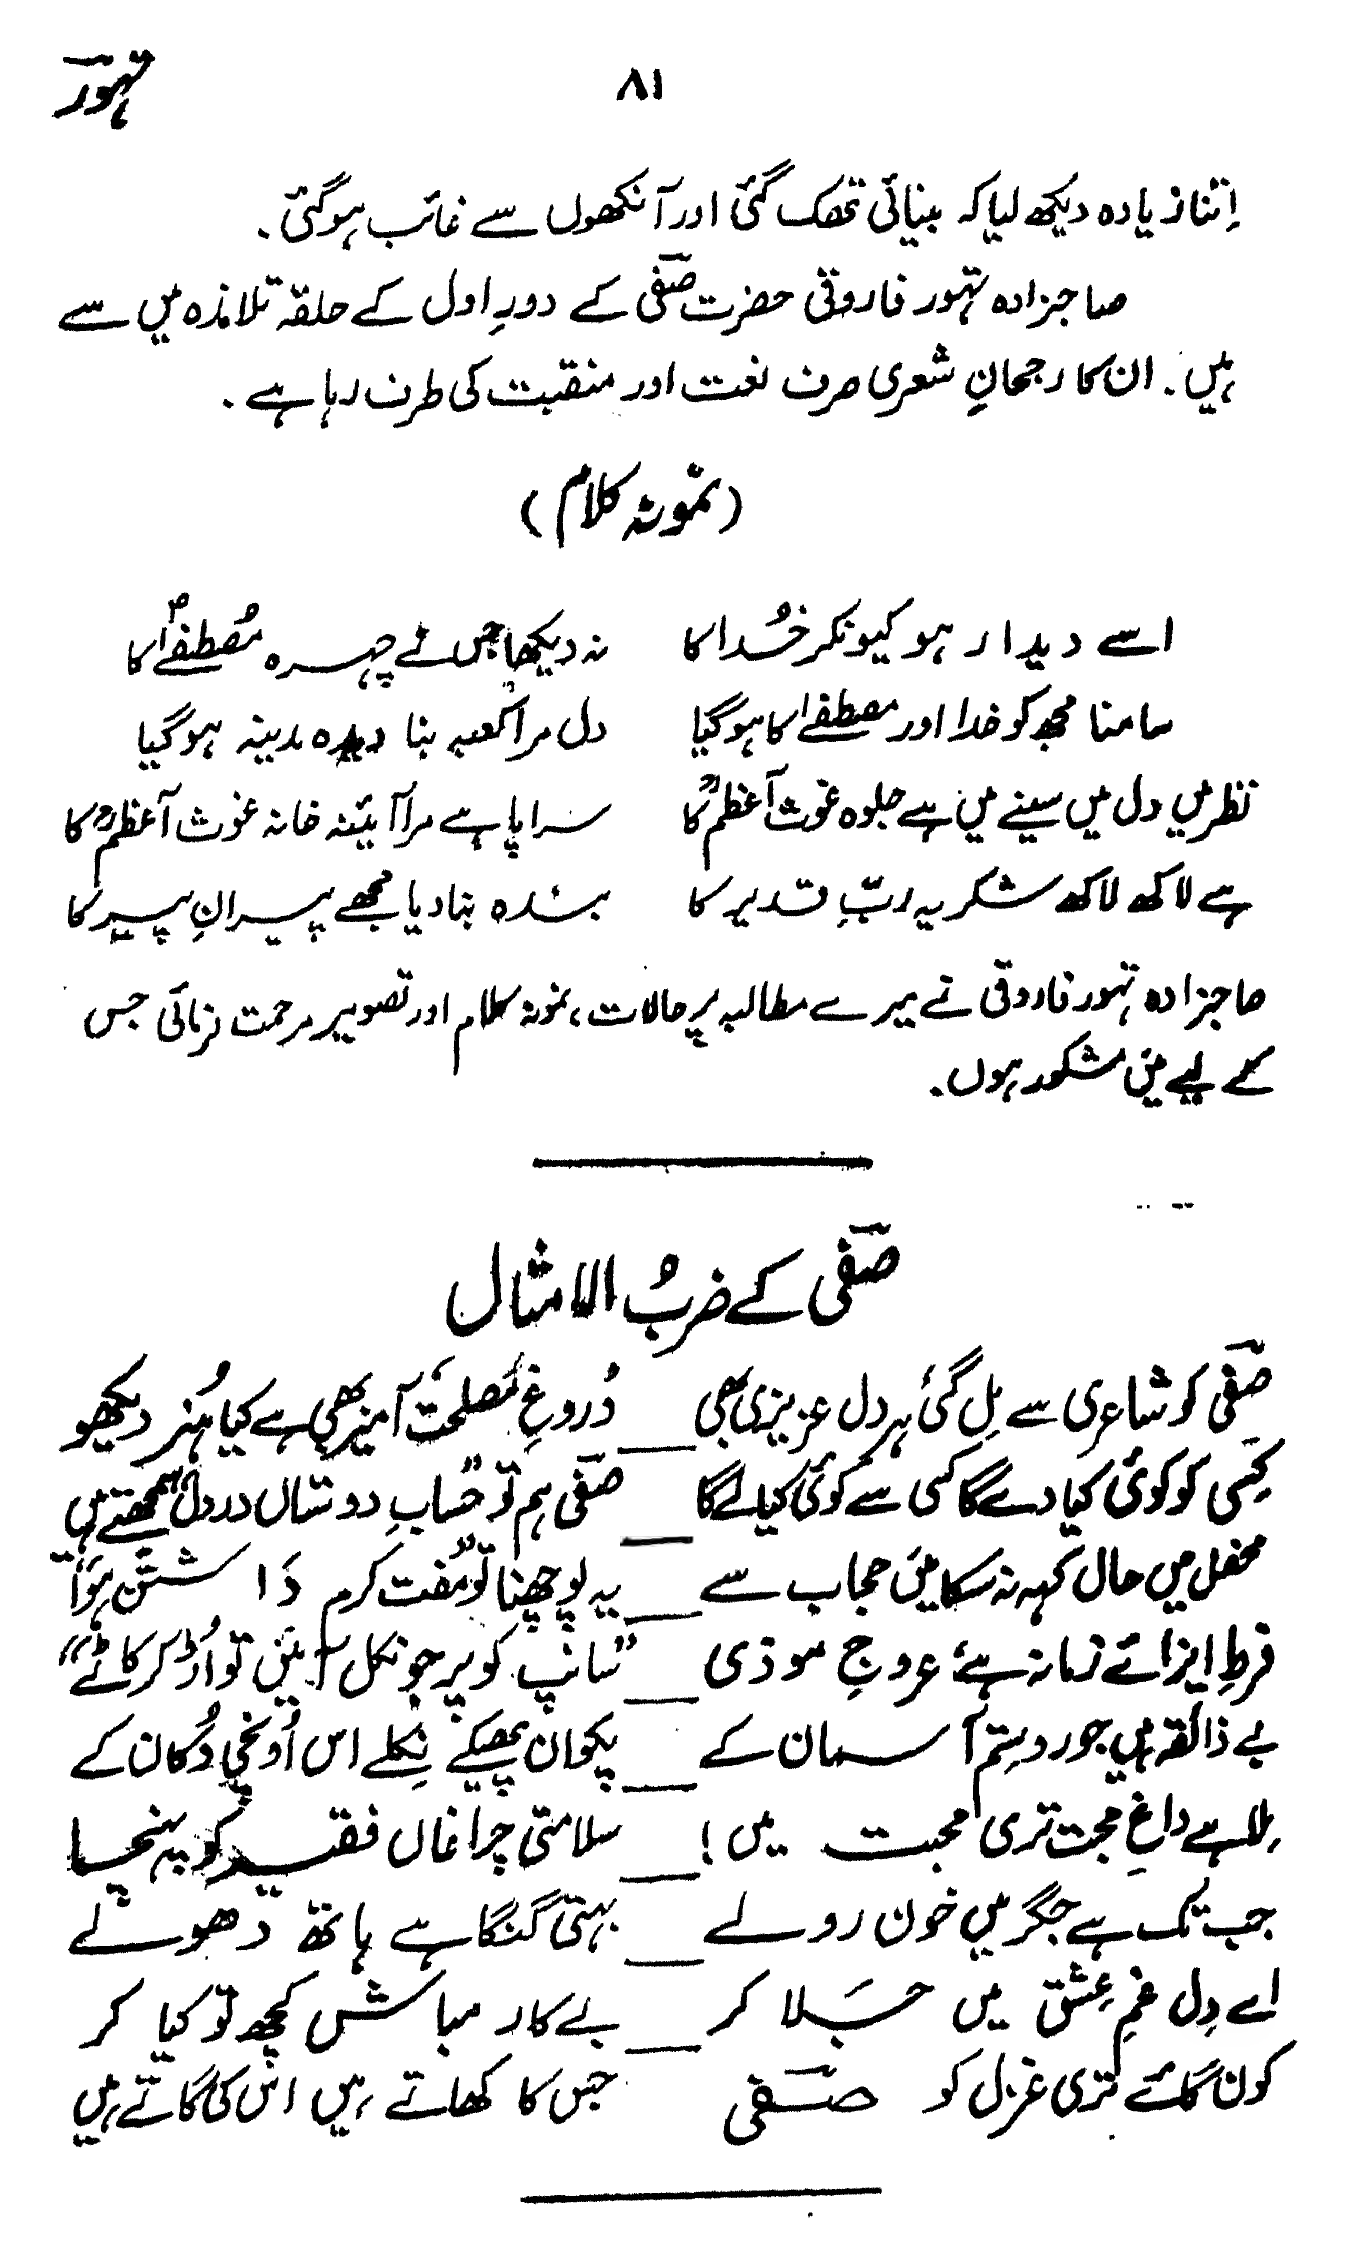 تہورؔ
۸۱
اِتنا زیادہ دیکھ لیا کہ بینائی تھک گئی اور آنکھوں سے غائب ہوگئی۔
صاجزادہ تہور فاروقی حضرت صفیؔ کے دورِ اول کے حلقہ تلامذہ میں سے
ہیں۔ ان کا رجحانِ شعری صرف نعت اور منقبت کی طرف رہا ہے۔
(نمونہ کلام)
اسے دیدار ہو کیونکر خُدا کا نہ دیکھا جس نے چہرہ مُصطفےٰؐ کا
سامنا مجھ کو خدا اور مصطفےٰ کا ہوگیا دل مرا کعبہ بنا دیدہ مدینہ ہوگیا
نظر میں دل میں سینے میں ہے جلوہ غوث آعظمؒ کا سراپا ہے مرا آئینہ خانہ غوث آعظمؒ کا
ہے لاکھ لاکھ شکر یہ ربِّ قدیر کا بندہ بنادیا مجھے پیرانِ پیر کا
صاجزادہ تہور فاروقی نے میرے مطالبہ پر حالات، نمونہ کلام اور تصویر مرحمت فرمائی جس
کے لیے میَں مشکور ہوں۔
صفیؔ کے ضربُ الامثال
صفیؔ کو شاعری سے مِل گئی ہر دل عزیزی بھی ـــ دُروغِ مَصلحَت آمیز بھی ہے کیا ہُنر دیکھو
کِسی کو کوئی کیا دے گا کسی سے کوئی کیا لے گا ـــ صفیؔ ہم تو "حساب دوستاں در دل" سمجھتے ہیں
محفل میں حال کہہ نہ سکا میَں حجاب سے ـــ یہ پوچھنا تو "مُفت کرم دَاشتَن ہُوَا"
فرطِ ایذائے زمانہ ہے، عروجِ موذی ـــ "سانپ کو پر جو نکل آئیں تو اُڑ کر کاٹے"
بے ذائقہ ہیں جور و ستم آسمان کے ـــ پکوان پھیکے نِکلے اس اُونچی دُکان کے
مِلا ہے داغِ محبت تری محبت میں! ـــ سلامتی چراغاں فقیر کو پہنچا
جب تک ہے جگر میں خون رولے ـــ بہتی گنگا ہے ہاتھ دھولے
اے دِل غمِ عِشق میں جَلا کر ـــ بے کار مباش کچھ تو کیا کر
کون گائے تری غزل کو صفیؔ جس کا کھاتے ہیں اس کی گاتے ہیں